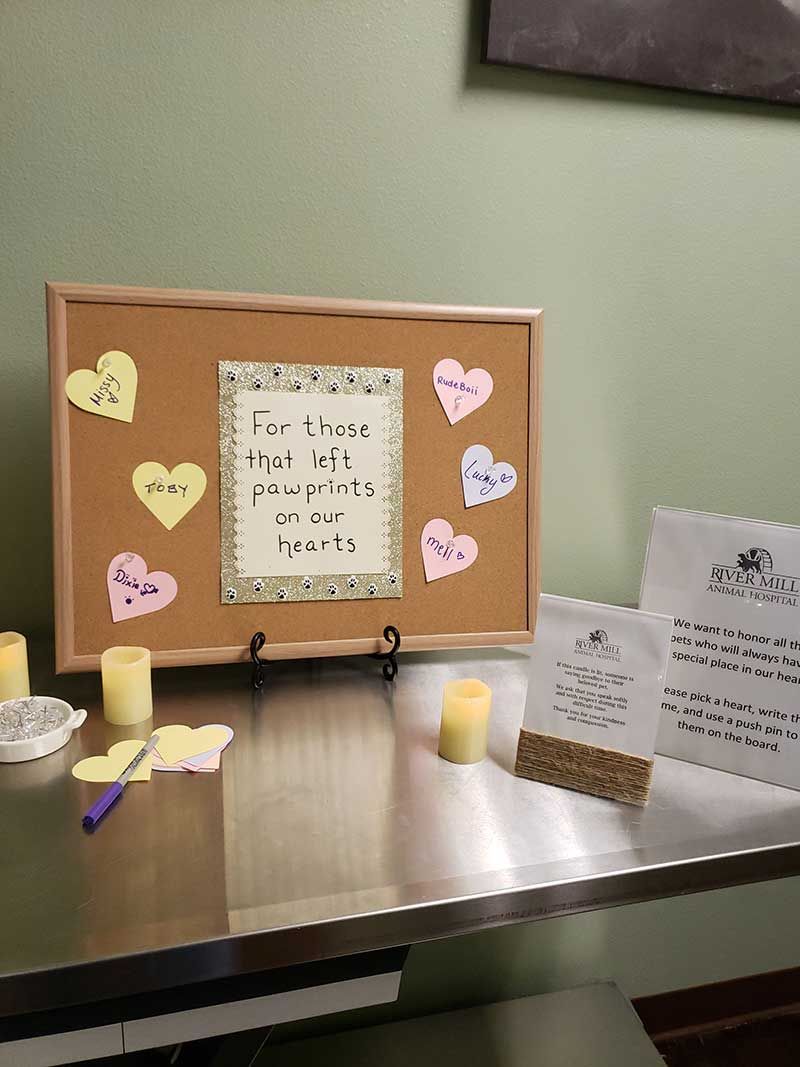 Missy
TOBY
Dixie
For those
that left
pawprints
on our
hearts
RudeBoii
Lucky
Mell
RIVER MILL
ANIMAL HOSPITAL
If this candle is lit, someone is
saying goodbye to their
beloved pet.
We ask that you speak softly
and with respect during this
difficult time.
Thank you for your kindness
and compassion.
RIVER MILL
ANIMAL HOSPITAL
We want to honor all th
pets who will always hav
special place in our hear
ease pick a heart, write th
me, and use a push pin to
them on the board.